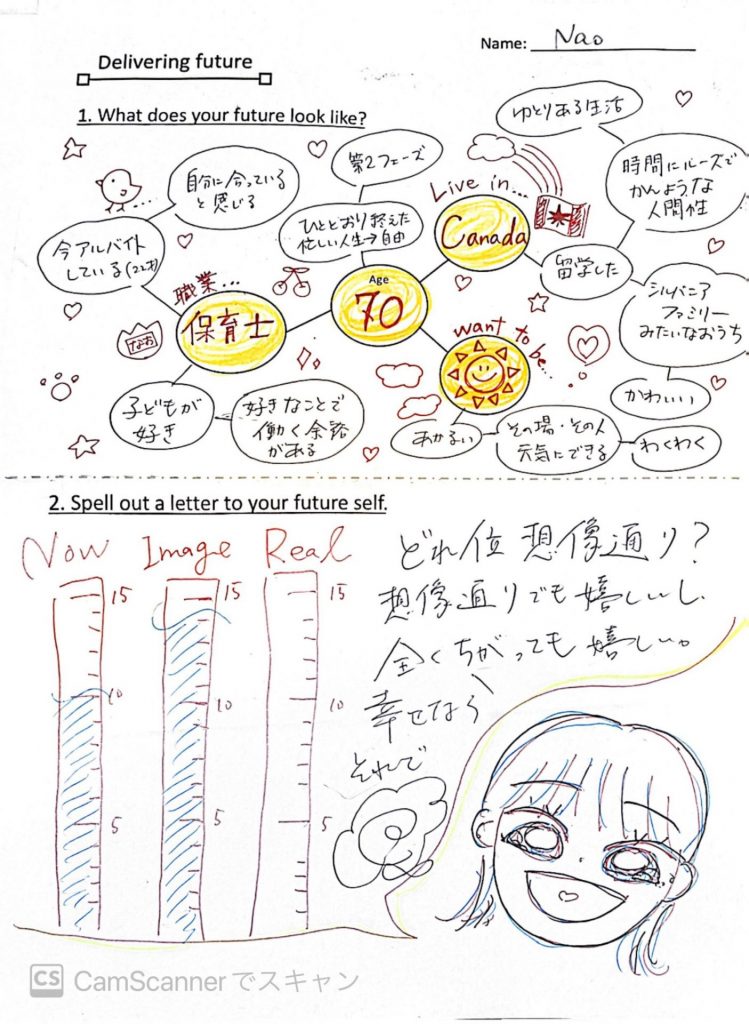 Name: Nao
Delivering future
1. What does your future look like?
自分に合っている
と感じる
今アルバイト
している(22才)
職業...
保育士
なお
子どもが
好き
好きなことで
働く余裕
がある
第2フェーズ
ひととおり終えた
忙しい人生→自由
Age
70
Live in...
Canada
留学した
ゆとりある生活
時間にルーズで
かんような
人間性
シルバニア
ファミリー
みたいなおうち
かわいい
want to be...
あかるい
その場・その人
元気にできる
わくわく
2. Spell out a letter to your future self.
Now Image Real
15 15 15
10 10 10
5 5 5
どれ位想像通り?
想像通りでも嬉しいし、
全くちがっても嬉しい。
幸せなら
それで
CS CamScannerでスキャン